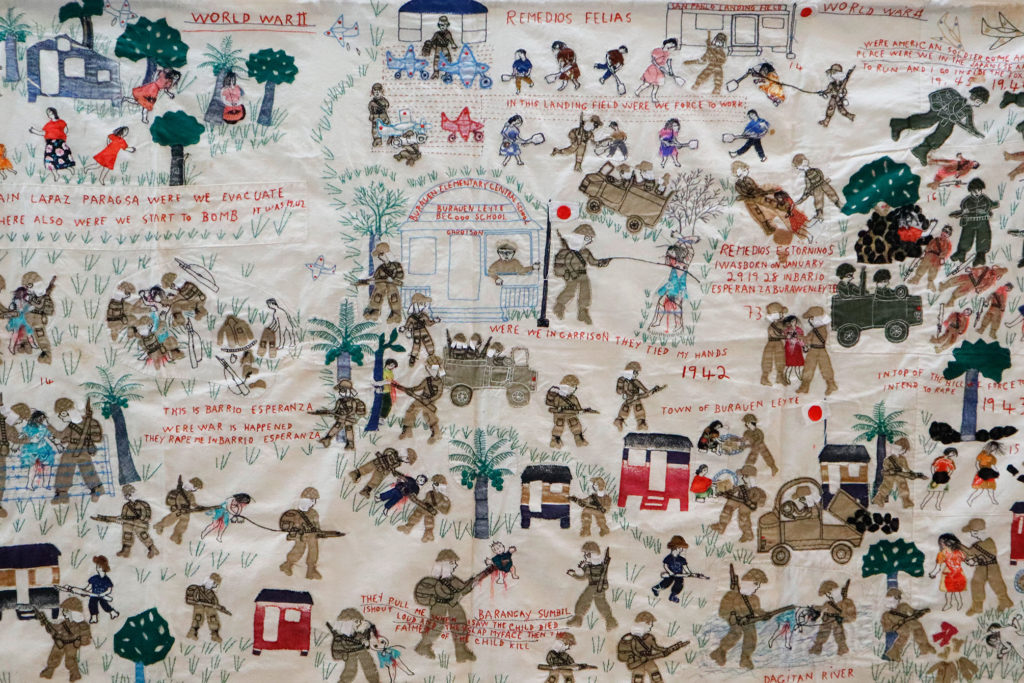 WORLD WAR II
REMEDIOS FELIAS
SAN PABLO LANDING FIELD
WORLD WAR II
WERE AMERICAN SOLDIER COME
PLACE WERE WE IN THE JAPANESE
TO RUN AND I GO INSIDE THE
194
194
14
IN THIS LANDING FIELD WERE WE FORCE TO WORK;
16
LAPAZ PARAGSA WERE WE EVACUATE
HERE ALSO WERE WE START TO BOMB IT WAS 1942
BURAUEN ELEMENTARY CENTRAL SCHOOL
BURAUEN LEYTE
BECOOO SCHOOL
GARDISON
REMEDIOS ESTORNINOS
I WAS BORN ON JANUARY
29.19 28 IN BARIO
ESPERANZA BURAWEN LEYTE
73
WERE WE IN GARRISON THEY TIED MY HANDS
1942
14
THIS IS BARRIO ESPERANZA
WERE WAR IS HAPPENED
THEY RAPE ME IN BARRIO ESPERANZA
IN TOP OF THE HILL FORCE
INTEND TO RAPE
194
TOWN OF BURAUEN LEYTE
15
THEY PULL ME
I SHOUT
LOUD
SAW THE CHILD DIED
FATHER SLAP MY FACE THEN THE
OF THE CHILD KILL
BARANGAY SUMBIL
DAGITAN RIVER